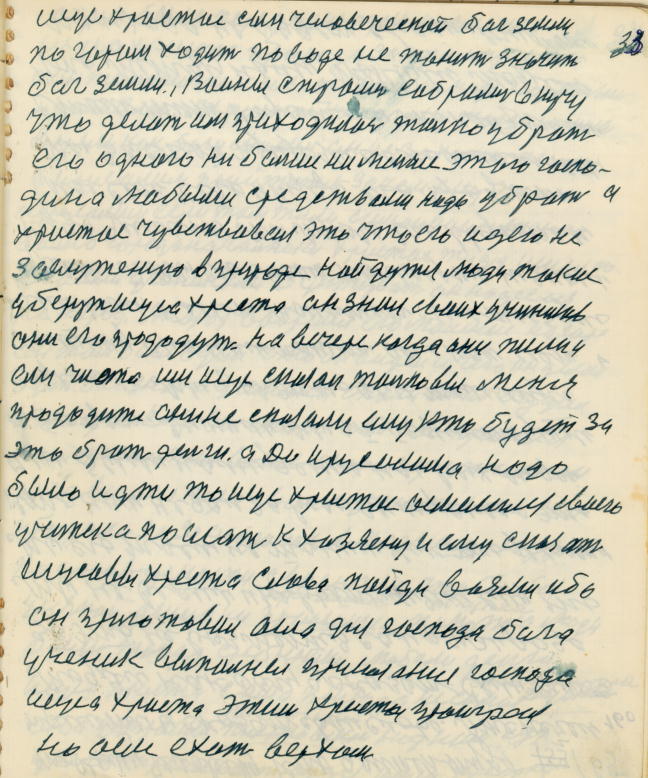 исус христос сын человеческой бог земли 33
по горам ходит по воде не тонит значит
бог земли, Воины стражи собрались в кучу
что делат им приходилос толко убрат
его одного ни болши ни менше этого госпо-
дина любыми средствами надо убрат а
христос чувствовал это что его идею не
заслужению в природе найдутся люди такие
уберут исуса христа он знал своих учиников
они его прододут на вечере когда они пили и
ели чисто им исус сказал толко вы меня
прододите они не сказали ему кто будет за
это брат денги. а До ерусолима надо
было идти то исус христос осмелился своего
учиника послат к хозяену и ему сказат
исусовы христа слова пойди возми ибо
он приготовил осла для господа бога
ученик выполнел приказание господа
исуса христа этим христа проиграл
на осле ехат верхом